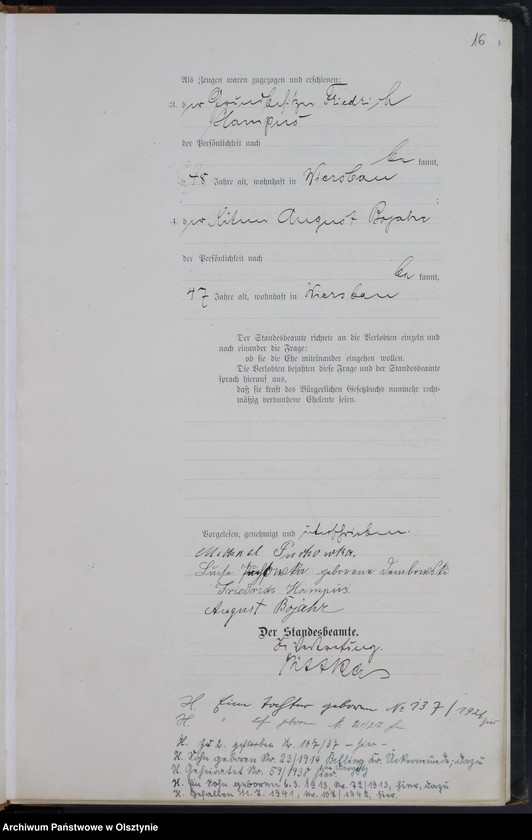 16
Als Zeugen waren zugezogen und erschienen:
3. der Grundbesitzer Friedrich
Hampus
der Persönlichkeit nach
be kannt,
48 Jahre alt, wohnhaft in Wiersbau
4. der August Bojahr
der Persönlichkeit nach
be kannt,
47 Jahre alt, wohnhaft in Wiersbau
Der Standesbeamte richtete an die Verlobten einzeln und
nach einander die Frage:
ob sie die Ehe miteinander eingehen wollen.
Die Verlobten bejahten diese Frage und der Standesbeamte
sprach hierauf aus,
daß sie kraft des Bürgerlichen Gesetzbuchs nunmehr recht-
mäßig verbundene Eheleute seien.
Vorgelesen, genehmigt und unterschrieben.
Michael Puchowka.
geborene Dembowski
Friedrich Hampus.
August Bojahr
Der Standesbeamte.
In Vertretung.
H. Eine Tochter geboren Nr 137/
H.
H. zu 2. gestorben Nr. 107/37 - hier -
H. Sohn geboren Nr. 23/1914 Kr. Ückermünde, dazu
H. Geheiratet Nr. 59/1938
H. Ein Sohn geboren 6.3.1913, Nr. 72/1913, hier, dazu
H. Gefallen 11.7.1941, Nr. 1942, hier.
Archiwum Państwowe w Olsztynie